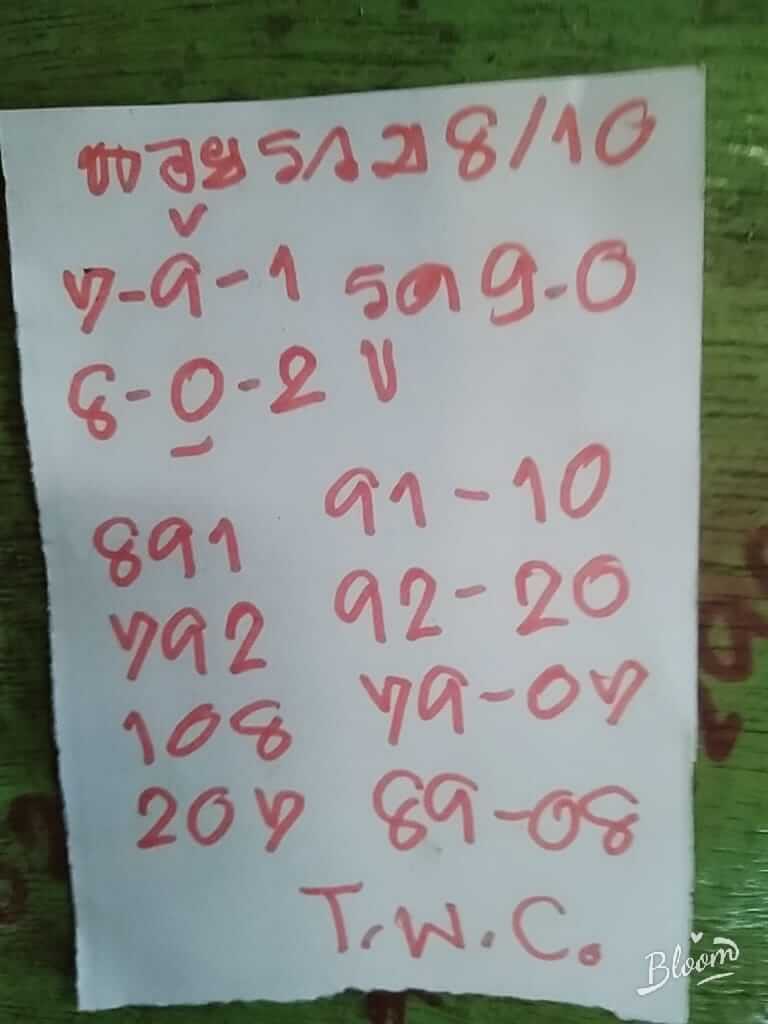 หวยราย 8/10
7-9-1 รถด 9-0
8-0-2 บ
891 91-10
792 92-20
108 79-07
207 89-08
T.W.C.
Bloom